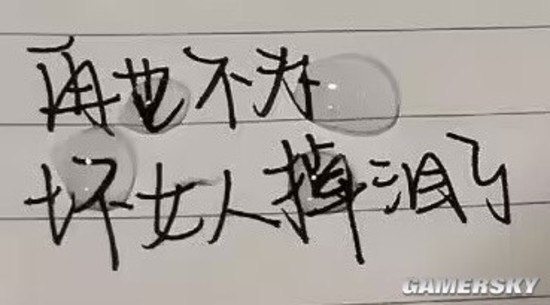 再也不为
坏女人掉泪了
GAMERSKY